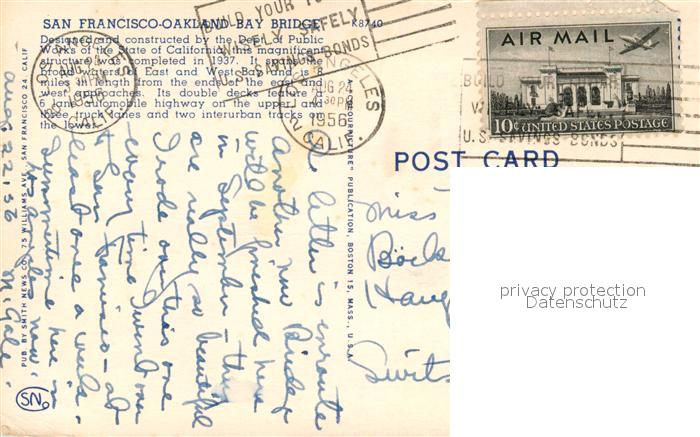 SAN FRANCISCO-OAKLAND BAY BRIDGE K8740
Designed and constructed by the Dept. of Public
Works of the State of California, this magnificent
structure was completed in 1937. It spans the
broad waters of East and West Bay and is 8
miles in length from the ends of the east and
west approaches. Its double decks feature a
6 lane automobile highway on the upper and
three truck lanes and two interurban tracks on
the lower.
BUILD YOUR
SAFELY
BONDS
ANGELES
AUG 24
1956
CALIF
AIR MAIL
10¢ UNITED STATES POSTAGE
U.S. SAVINGS BONDS
POST CARD
PUB. BY SMITH NEWS CO., 75 WILLIAMS AVE., SAN FRANCISCO 24, CALIF.
"COLOURPICTURE" PUBLICATION, BOSTON 15, MASS., U.S.A.
SN
Aug 22, 56
a letter is enroute
Another new Bridge
will be finished here
in September - they
are really so beautiful
I rode over this one
every time I went over
to San Francisco - at
least once a week.
Summertime here in
Los Angeles now.
Miss
Böck
Haup
Switz
privacy protection
Datenschutz